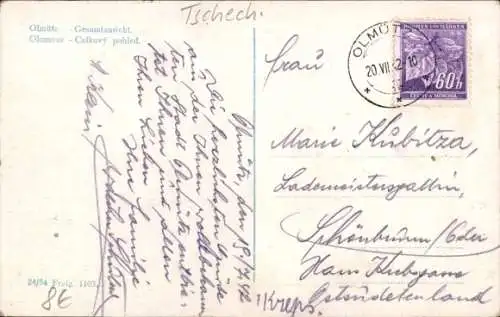 Tschech.
Olmütz - Gesamtansicht.
Olomouc - Celkový pohled.
Olmütz, den 19./7. 42
Die herzlichsten Grüße
aus der Ihnen wohlbekann
ten Stadt Olmütz
Ihnen und allen
Ihren Lieben
Ihre Familie
24/94 Freig. 1103
8€
OLMÜTZ
20.VII.42-10
BÖHMEN UND MÄHREN
60h
ČECHY A MORAVA
Frau
Marie Kubitza,
Lademeistersgattin,
Schönbrunn /Oder
Haus Kubyane
Ostsudetenland
1Kreps.